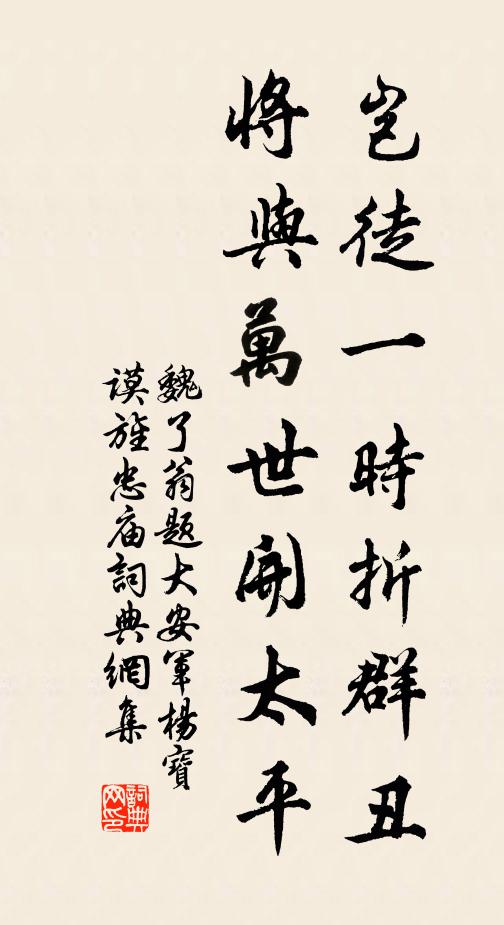 豈徒一時折群丑
將與萬世開太平
魏了翁題大安軍楊寶
謨旌忠庙詞典網集
詞典
网